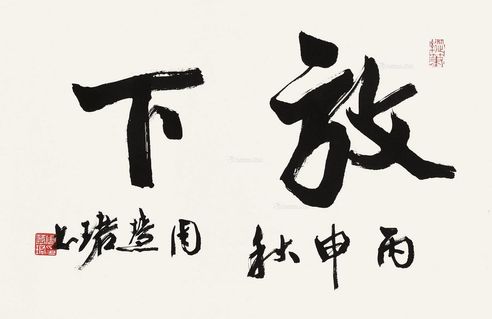 放下
丙申秋 周慧珺书